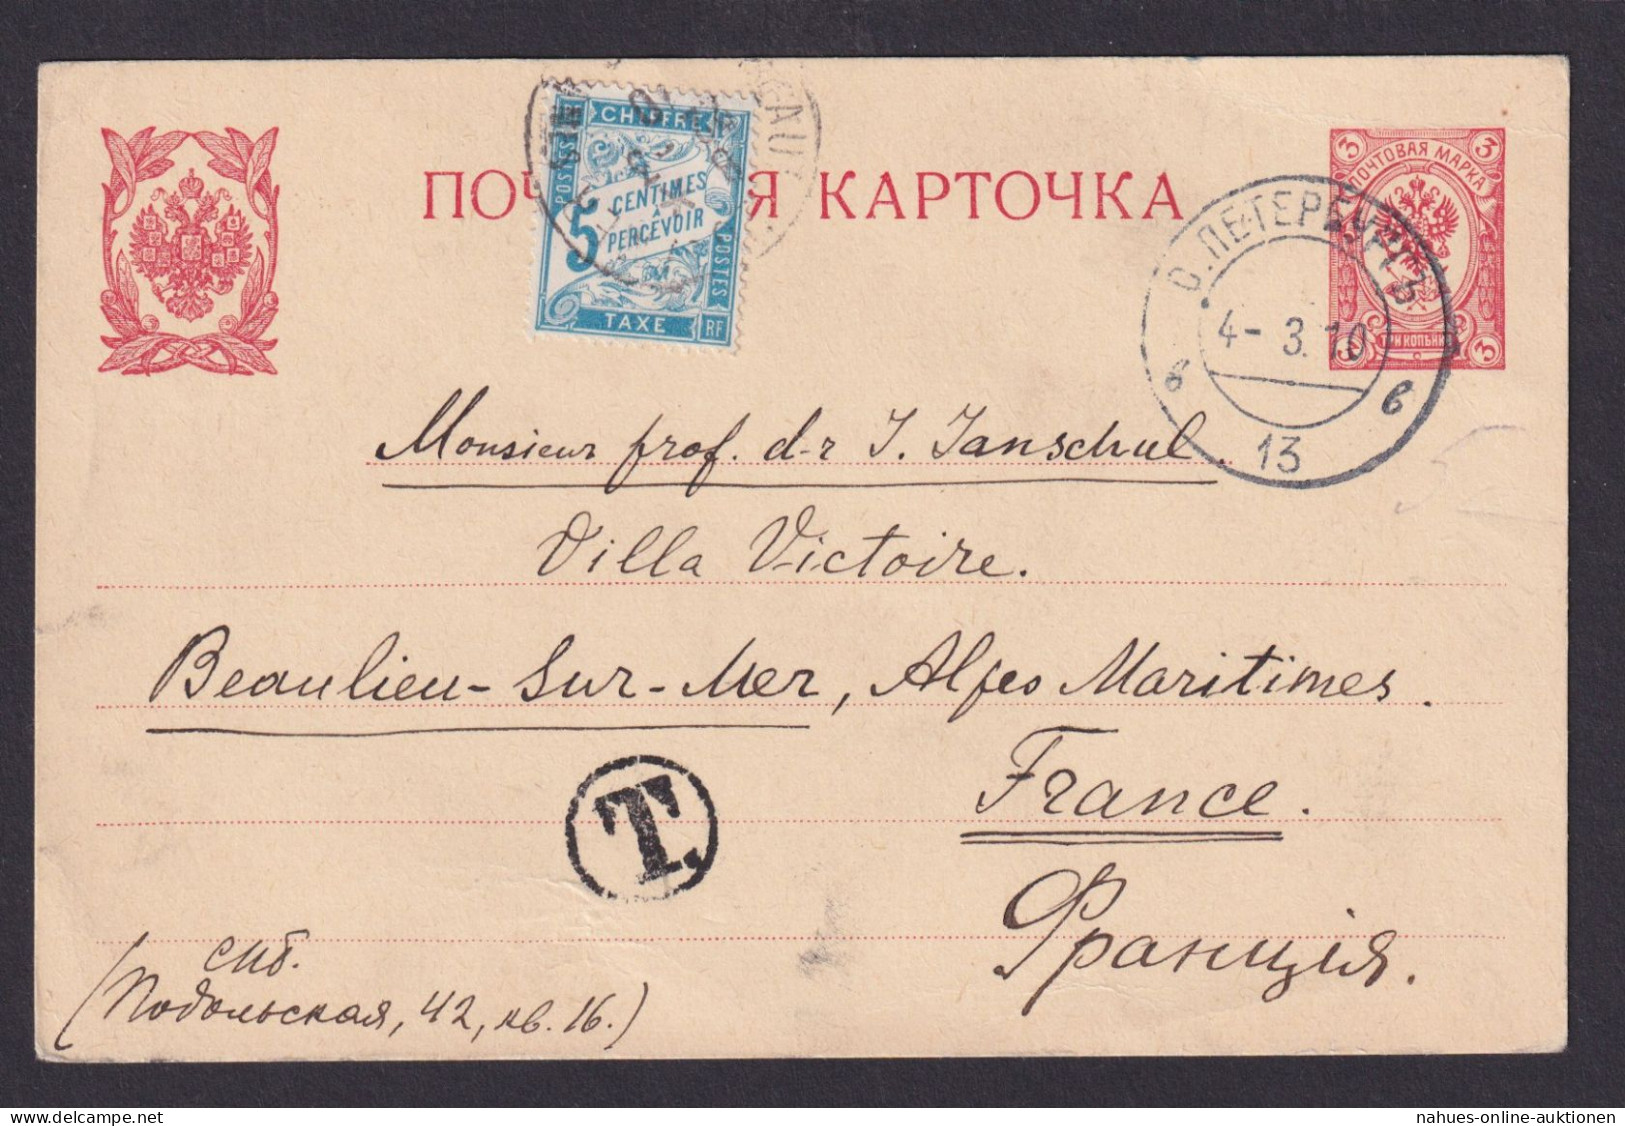 ПОЧ Я КАРТОЧКА
CHIFFRE
POSTES
5 CENTIMES
A
PERCEVOIR
POSTES
TAXE
RF
3 3
ПОЧТОВАЯ МАРКА
ТРИ КОПѢЙКИ
3 3
С.ПЕТЕРБУРГЪ
4- 3.10
в в
13
Monsieur prof. d-r I. Ianschul.
5
Villa Victoire.
Beaulieu-Sur-Mer, Alpes Maritimes.
France.
T.
Франція.
СПб.
(Подольская, 42, кв. 16.)
www.delcampe.net
nahues-online-auktionen